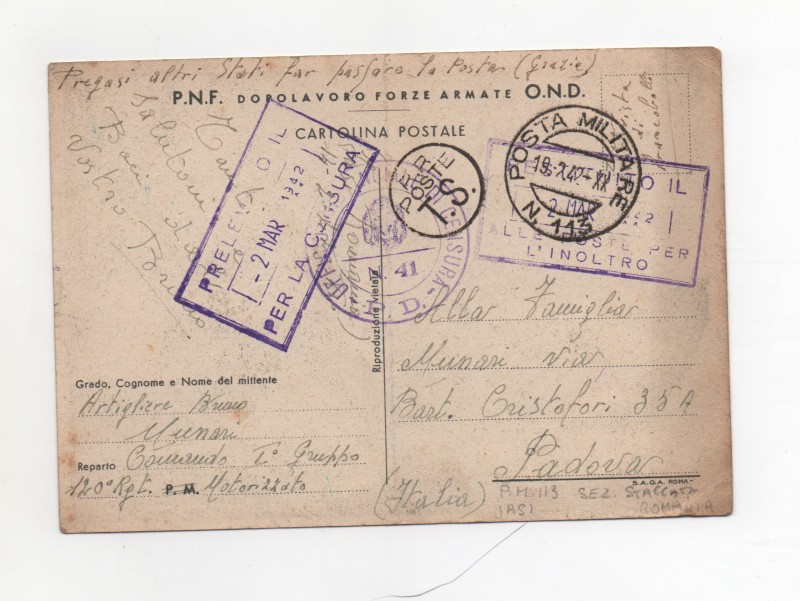 Pregasi altri Stati far passare la Posta (Grazie)
P.N.F. DOPOLAVORO FORZE ARMATE O.N.D.
CARTOLINA POSTALE
vista
di
Tanti
Salutoni
Baci da
Vostro Bruno
PRELEVATO IL
- 2 MAR 1942
PER LA CENSURA
POSTE
T.S.
POSTA MILITARE
N. 113
IL
2 MAR
ALLE POSTE PER
L'INOLTRO
CENSURA
41
Riproduzione vietata
Alla Famiglia
Munari Via
Bart. Cristofori 35A
Padova
(Italia)
Grado, Cognome e Nome del mittente
Artigliere Bruno
Munari
Reparto Comando I° Gruppo
120° Rgt. P. M. Motorizzato
S.A.G.A. ROMA-
P.M. 113 SEZ. STACCATA
IASI ROMANIA